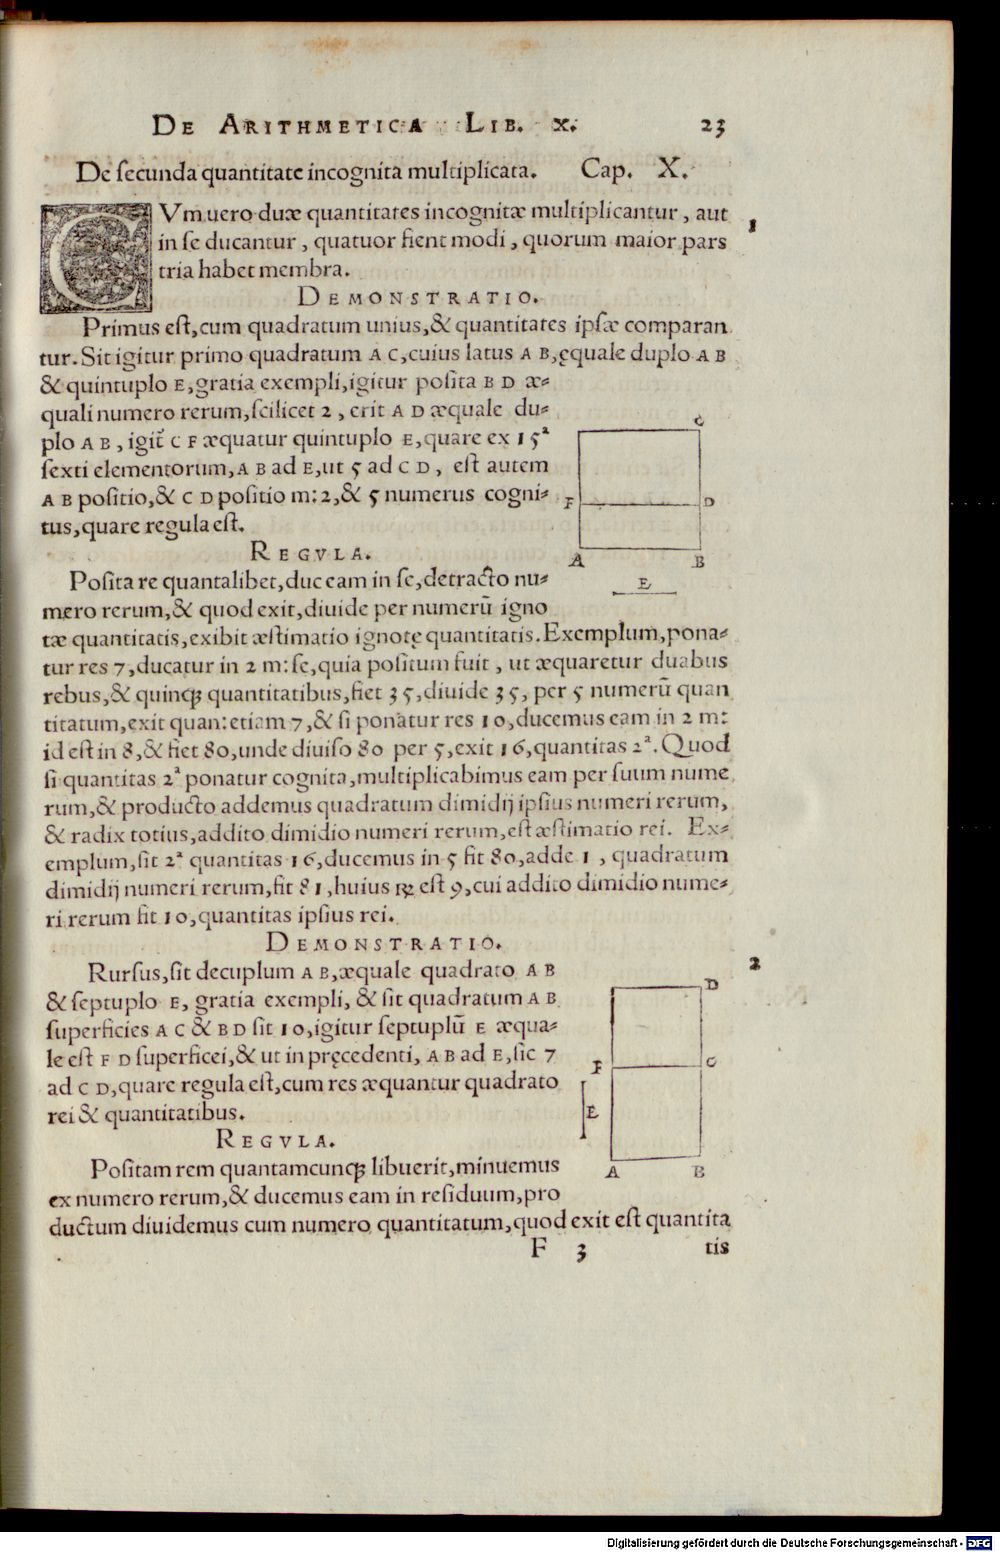 DE ARITHMETICA LIB. X. 23
De secunda quantitate incognita multiplicata. Cap. X.
CVm uero duæ quantitates incognitæ multiplicantur, aut
in se ducantur, quatuor fient modi, quorum maior pars
tria habet membra.
1
DEMONSTRATIO.
Primus est, cum quadratum unius, & quantitates ipsæ comparan
tur. Sit igitur primo quadratum A C, cuius latus A B, ęquale duplo A B
& quintuplo E, gratia exempli, igitur posita B D æ-
quali numero rerum, scilicet 2, erit A D æquale du-
plo A B, igit̃ C F æquatur quintuplo E, quare ex 15ª
sexti elementorum, A B ad E, ut 5 ad C D, est autem
A B positio, & C D positio m: 2, & 5 numerus cogni-
tus, quare regula est.
C
F
D
A
B
E
REGVLA.
Posita re quantalibet, duc eam in se, detracto nu-
mero rerum, & quod exit, diuide per numerũ igno
tæ quantitatis, exibit æstimatio ignotę quantitatis. Exemplum, pona-
tur res 7, ducatur in 2 m: se, quia positum fuit, ut æquaretur duabus
rebus, & quinqꝫ quantitatibus, fiet 35, diuide 35, per 5 numerũ quan
titatum, exit quan: etiam 7, & si ponatur res 10, ducemus eam in 2 m:
id est in 8, & fiet 80, unde diuiso 80 per 5, exit 16, quantitas 2ª. Quod
si quantitas 2ª ponatur cognita, multiplicabimus eam per suum nume
rum, & producto addemus quadratum dimidij ipsius numeri rerum,
& radix totius, addito dimidio numeri rerum, est æstimatio rei. Ex-
emplum, sit 2ª quantitas 16, ducemus in 5 fit 80, adde 1, quadratum
dimidij numeri rerum, fit 81, huius ℞ est 9, cui addito dimidio nume-
ri rerum fit 10, quantitas ipsius rei.
DEMONSTRATIO.
2
Rursus, sit decuplum A B, æquale quadrato A B
& septuplo E, gratia exempli, & sit quadratum A B
superficies A C & B D sit 10, igitur septuplũ E æqua-
le est F D superficei, & ut in pręcedenti, A B ad E, sic 7
ad C D, quare regula est, cum res æquantur quadrato
rei & quantitatibus.
D
F
C
E
A
B
REGVLA.
Positam rem quantamcunqꝫ libuerit, minuemus
ex numero rerum, & ducemus eam in residuum, pro
ductum diuidemus cum numero quantitatum, quod exit est quantita
F 3 tis
Digitalisierung gefördert durch die Deutsche Forschungsgemeinschaft - DFG